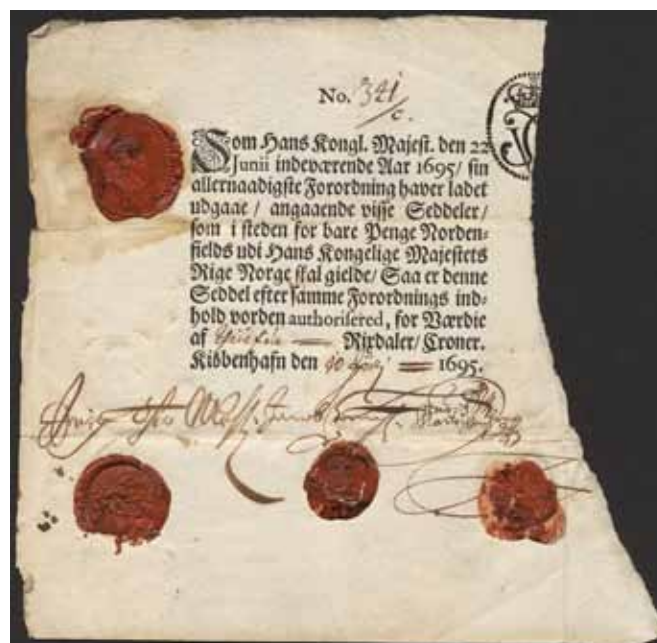 No. 321
/c.
Som Hans Kongl. Majest. den 22
Junii indeværende Aar 1695/ sin
allernaadigste Forordning haver ladet
udgaae / angaaende visse Seddeler/
som i steden for bare Penge Norden-
fields udi Hans Kongelige Majestets
Rige Norge skal gielde/ Saa er denne
Seddel efter samme Forordnings ind-
hold vorden authorisered, for Værdie
af Rixdaler/ Croner.
Kiøbenhafn den 1695.